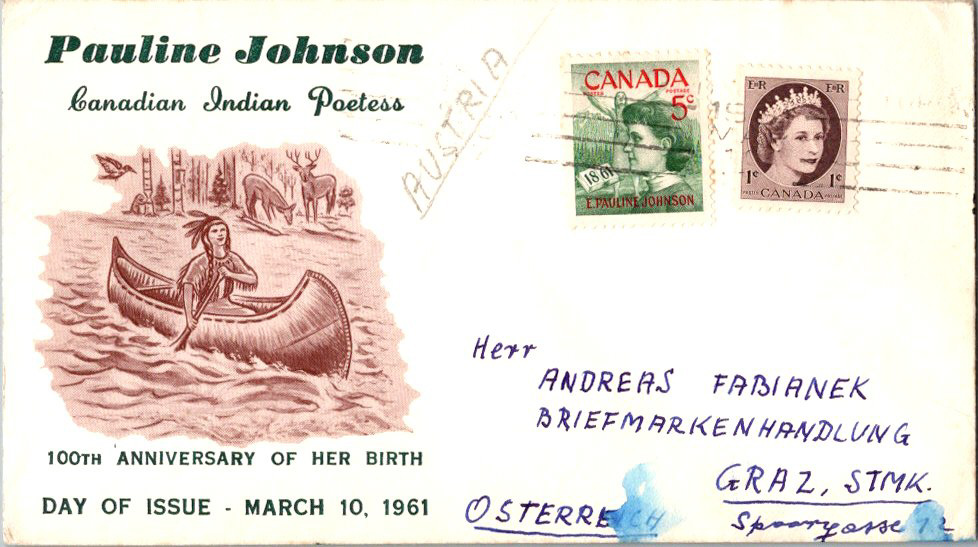 Pauline Johnson
Canadian Indian Poetess
AUSTRIA
CANADA
POSTES POSTAGE
5¢
1861
E. PAULINE JOHNSON
E II R E II R
1¢ 1¢
POSTES CANADA POSTAGE
100TH ANNIVERSARY OF HER BIRTH
DAY OF ISSUE - MARCH 10, 1961
Herr
ANDREAS FABIANEK
BRIEFMARKENHANDLUNG
GRAZ, STMK.
OSTERREICH
Sporgasse 12